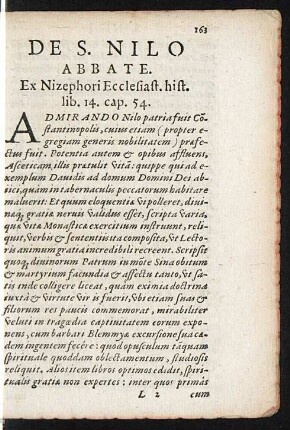 163
DE S. NILO
ABBATE.
Ex Nizephori Ecclesiast. hist.
lib. 14. cap. 54.
ADMIRANDO Nilo patria fuit Cõ-
stantinopolis, cuius etiam (propter e-
gregiam generis nobilitatem) præfe-
ctus fuit. Potentia autem & opibus affluens,
Asceticam, illis prætulit Vitã: quippe qui ad e-
xemplum Dauidis ad domum Domini Dei ab-
ici, quàm in tabernaculis peccatorum habitare
maluerit: Et quum eloquentia Vi polleret, diui-
naq; gratiæ neruis validus esset, scripta varia,
quæ Vitæ Monasticæ exercitium instruunt, reli-
quit, Verbis & sententiis ita composita, Vt Lecto-
ris animum gratia incredibili recreent. Scripsit
quoq; diuinorum Patrum in môte Sina obitum
& martyrium facundia & affectu tanto, Vt sa-
tis inde colligere liceat, quàm eximia doctrina
iuxtà & virtute vir is fuerit, Vbi etiam suas &
filiorum res paucis commemorat, mirabiliter
Veluti in tragœdia captiuitatem eorum expo-
nens, cum barbari Blemmyæ excursione sua ca-
dem ingentem fecêre: quod opusculum tãquam
spirituale quoddam oblectamentum, studiosis
reliquit. Alios item libros optimos edidit, spiri-
tualis gratiæ non expertes: inter quos primùs
L 2 cum